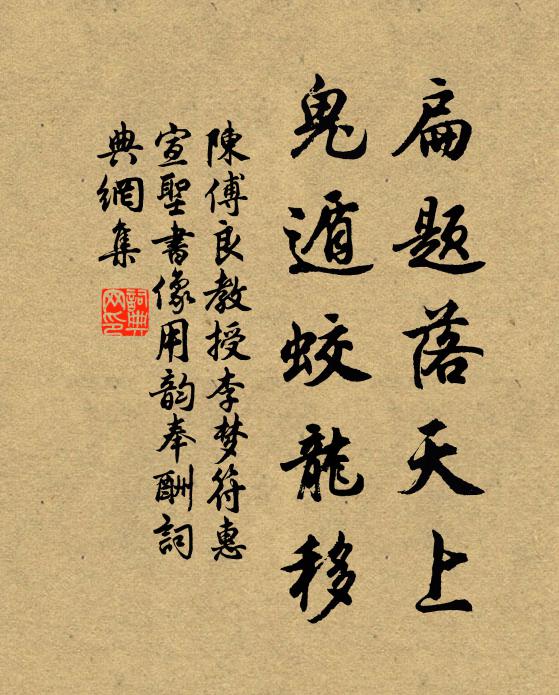 扁题落天上
鬼遁蛟龍移
陳傅良教授李梦符惠
宣聖書像用韵奉酬詞
典網集
詞典
网印